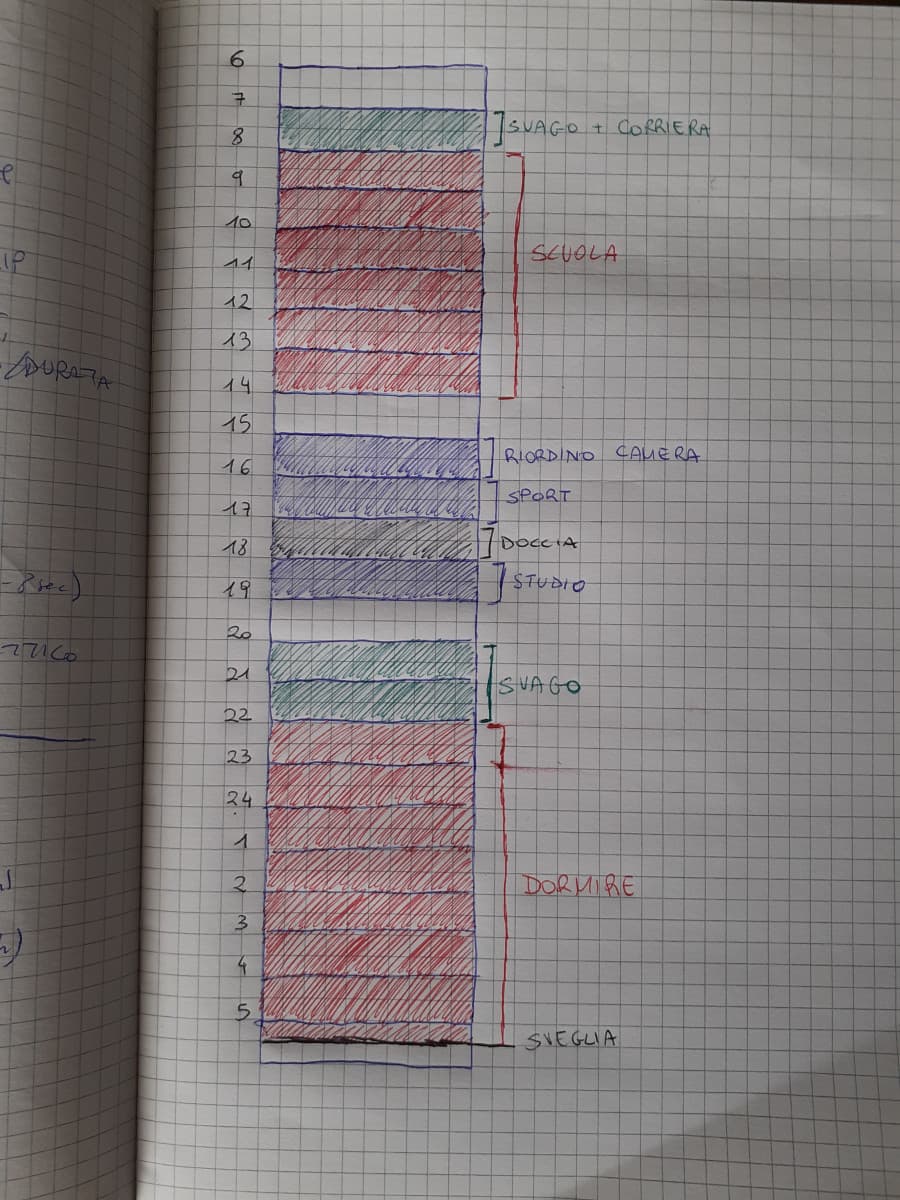 6
7
SVAGO + CORRIERA
8
9
10
SCUOLA
11
12
13
/DURATA
14
15
RIORDINO CAMERA
16
SPORT
17
DOCCIA
18
-8sec)
STUDIO
19
20
21
SVAGO
22
23
24
1
2
DORMIRE
3
4
5
SVEGLIA